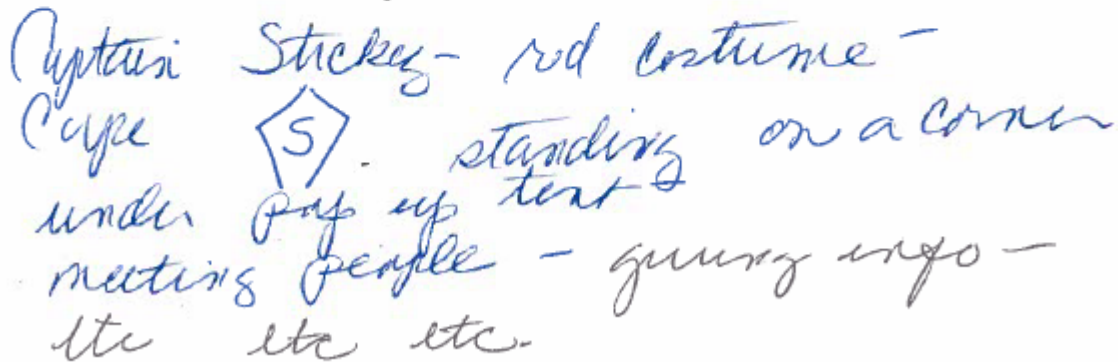 Captain Stickey - red costume -
Cape S. standing on a corner
under pop up tent
meeting people - giving info -
etc etc etc.